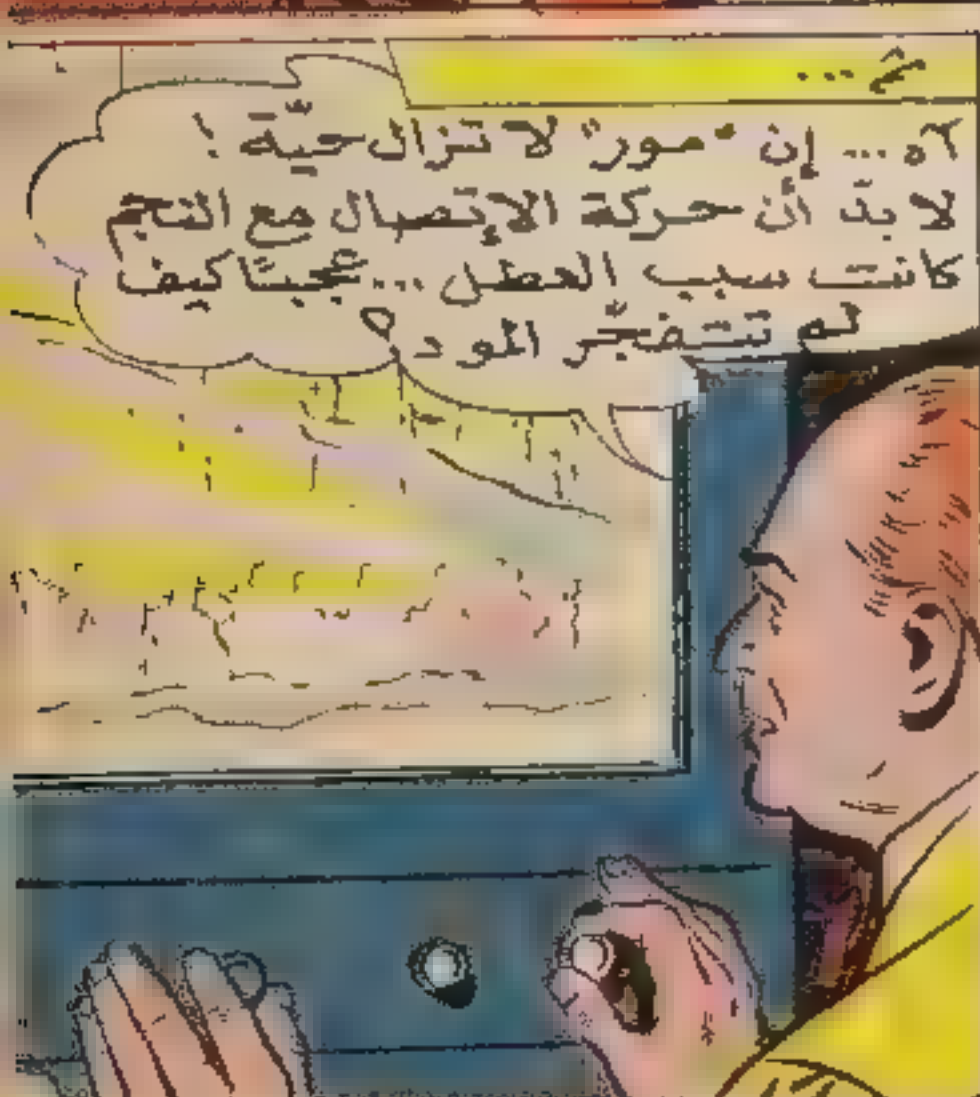 ثم ...
آه ... إن "مور" لا تزال حيّة !
لا بدّ أن حركة الإتصال مع النجم
كانت سبب العطل ... عجبًا كيف
لم تتفجّر المو د